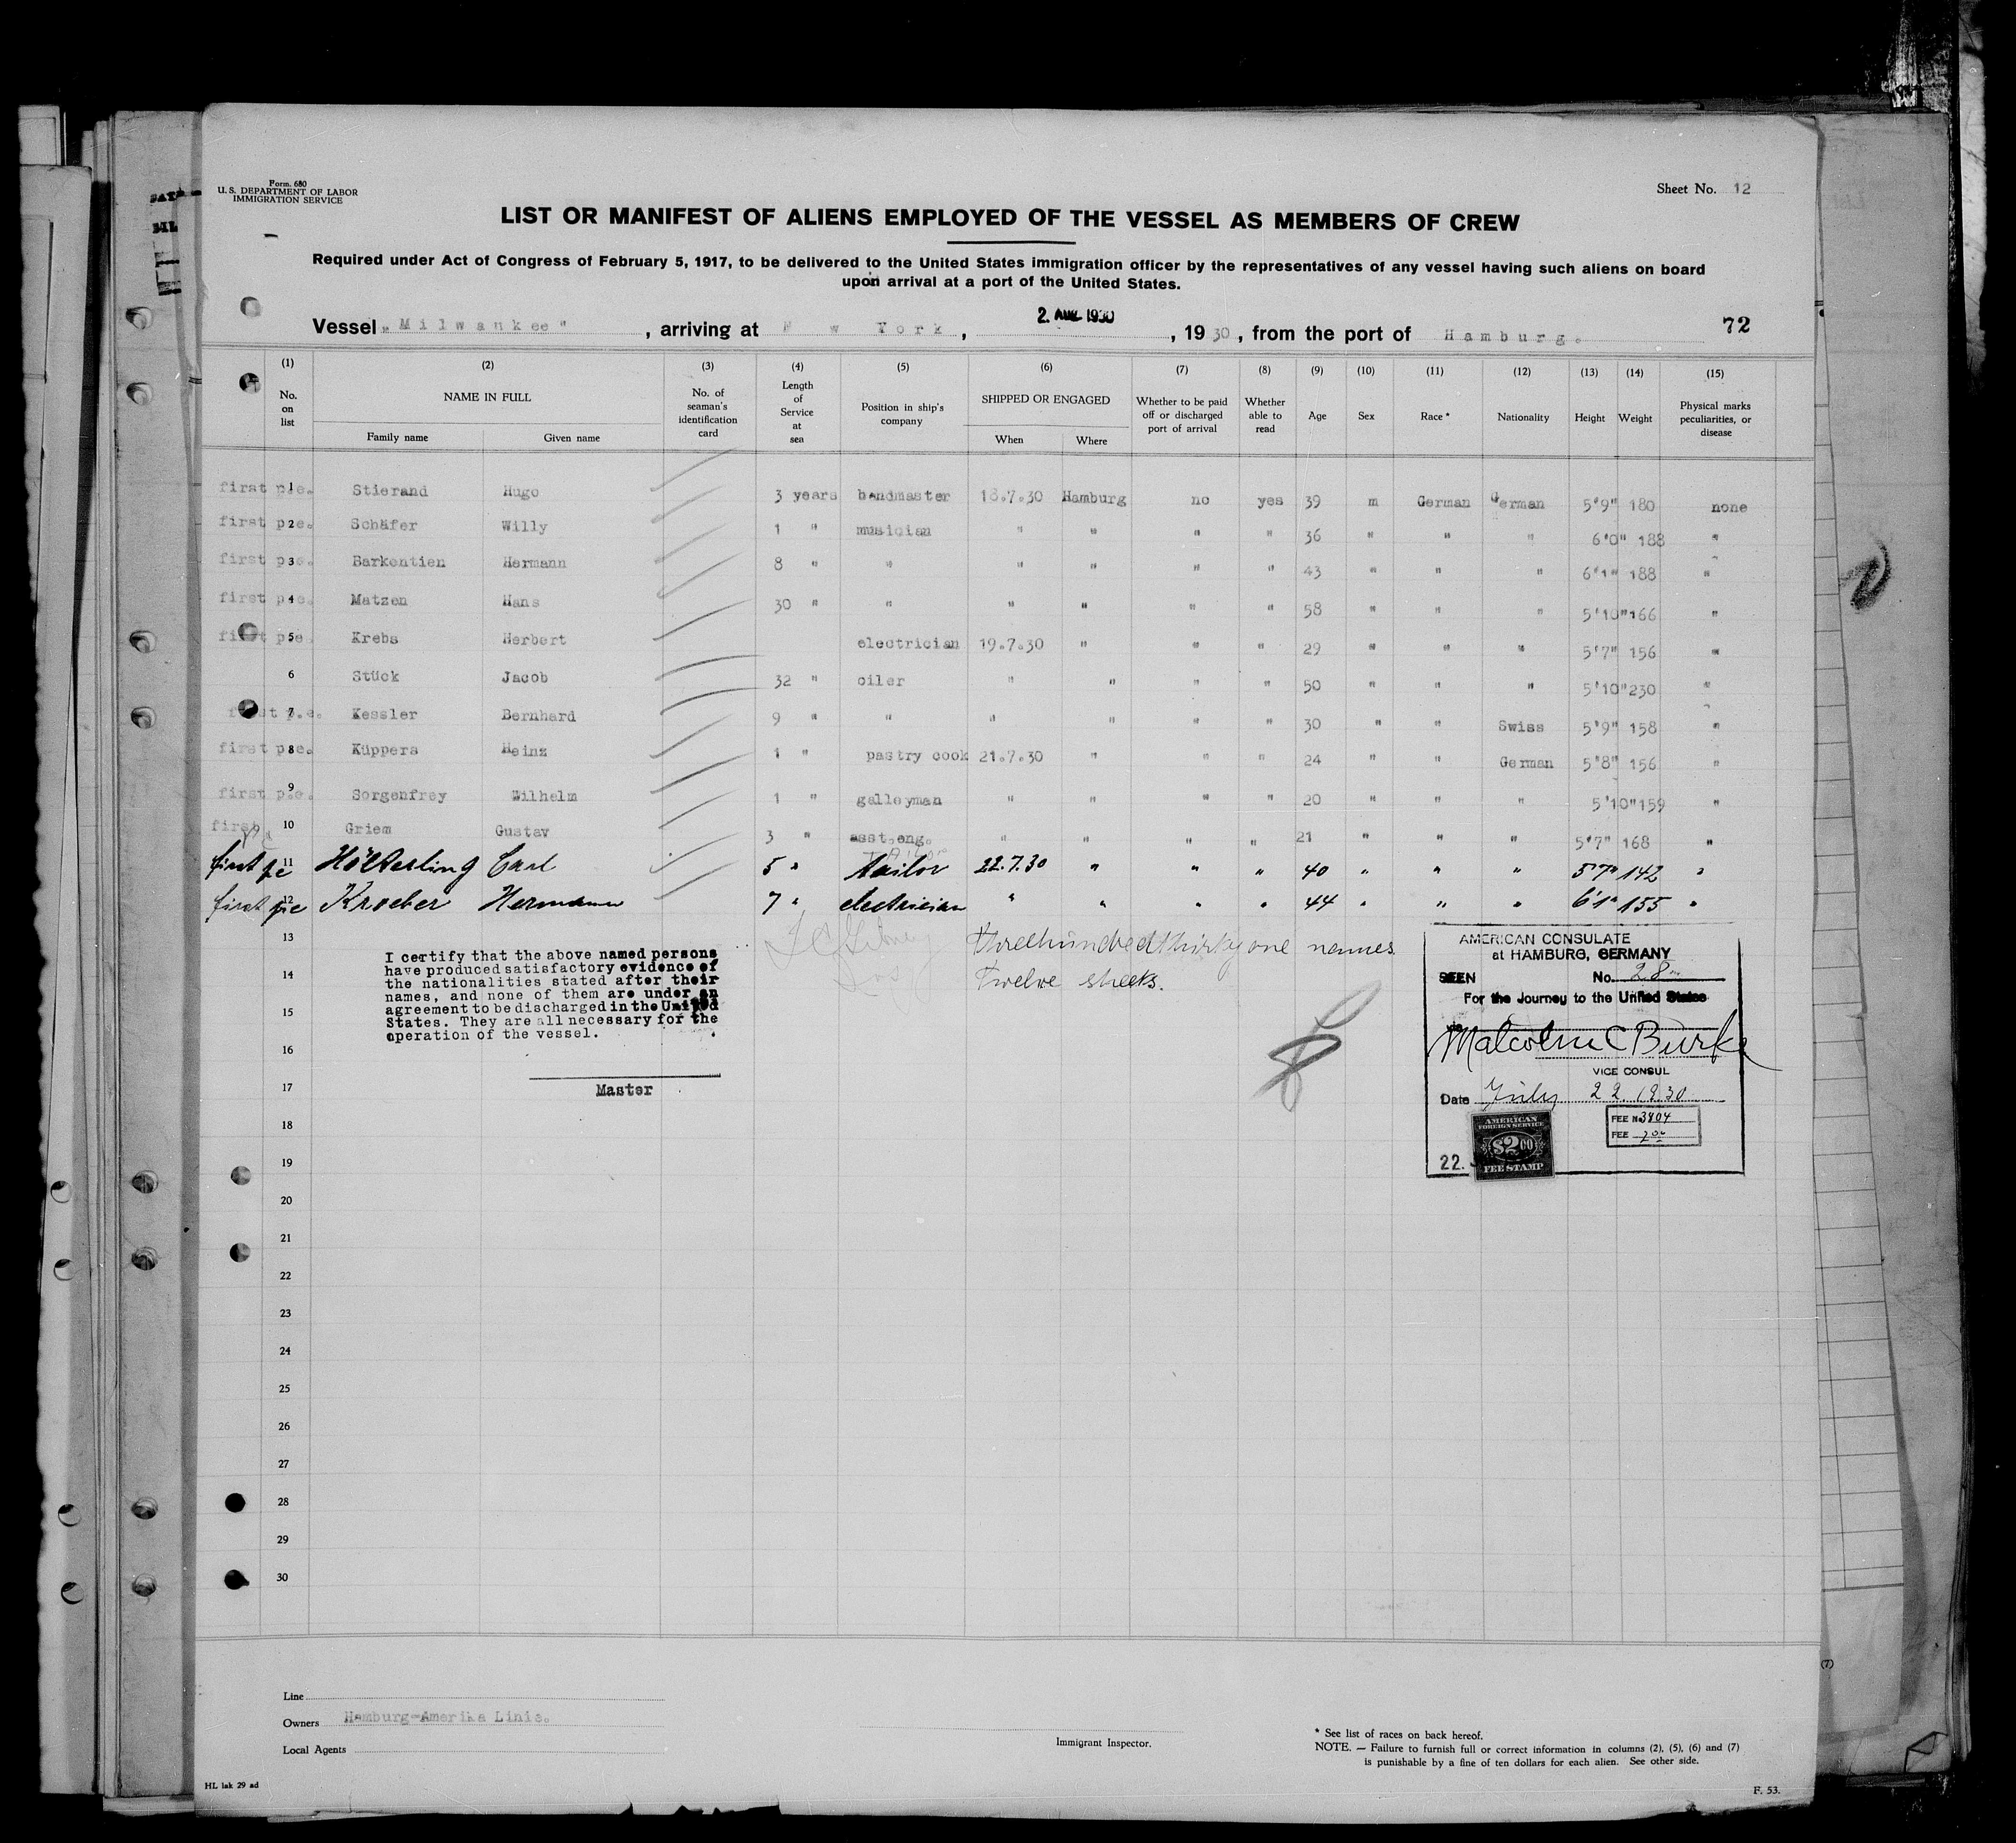 Form. 680
U. S. DEPARTMENT OF LABOR
IMMIGRATION SERVICE
Sheet No. 12
LIST OR MANIFEST OF ALIENS EMPLOYED OF THE VESSEL AS MEMBERS OF CREW
Required under Act of Congress of February 5, 1917, to be delivered to the United States immigration officer by the representatives of any vessel having such aliens on board
upon arrival at a port of the United States.
Vessel „Milwaukee" , arriving at N w York , 2. AUG 1930 , 1930 , from the port of Hamburg. 72
(1) (2) (3) (4) (5) (6) (7) (8) (9) (10) (11) (12) (13) (14) (15)
No. on list NAME IN FULL Family name Given name No. of seaman's identification card Length of Service at sea Position in ship's company SHIPPED OR ENGAGED When Where Whether to be paid off or discharged port of arrival Whether able to read Age Sex Race * Nationality Height Weight Physical marks peculiarities, or disease
first p.e. 1 Stierand Hugo 3 years bandmaster 18.7.30 Hamburg no yes 39 m German German 5'9" 180 none
first p.e. 2 Schäfer Willy 1 " musician " " " " 36 " " " 6'0" 188 "
first p.e. 3 Barkentien Hermann 8 " " " " " " 43 " " " 6'1" 188 "
first p.e. 4 Matzen Hans 30 " " " " " " 58 " " " 5'10" 166 "
first p.e. 5 Krebs Herbert electrician 19.7.30 " " " 29 " " " 5'7" 156 "
6 Stück Jacob 32 " oiler " " " " 50 " " " 5'10" 230 "
first p.e. 7 Kessler Bernhard 9 " " " " " " 30 " " Swiss 5'9" 158 "
first p.e. 8 Küppers Heinz 1 " pastry cook 21.7.30 " " " 24 " " German 5'8" 156 "
first p.e. 9 Sorgenfrey Wilhelm 1 " galleyman " " " " 20 " " " 5'10" 159 "
first pe 10 Griem Gustav 3 " asst.eng. " " " " 21 " " " 5'7" 168 "
first pe 11 Hölterling Carl 5 " tailor 22.7.30 " " " 40 " " " 5'7" 142 "
first pe 12 Kroeber Hermann 7 " electrician " " " " 44 " " " 6'1" 155 "
13
threehundredthirtyone names
Twelve sheets.
I certify that the above named persons
have produced satisfactory evidence of
the nationalities stated after their
names, and none of them are under an
agreement to be discharged in the United
States. They are all necessary for the
operation of the vessel.
Master
AMERICAN CONSULATE
at HAMBURG, GERMANY
SEEN No. 28
For the Journey to the United States
Malcolm C Burke
VICE CONSUL
Date July 22. 1930
FEE No 3904
FEE 2.00
AMERICAN
FOREIGN SERVICE
$2.00
FEE STAMP
22.
14
15
16
17
18
19
20
21
22
23
24
25
26
27
28
29
30
Line
Owners Hamburg-Amerika Linie.
Local Agents
Immigrant Inspector.
* See list of races on back hereof.
NOTE. — Failure to furnish full or correct information in columns (2), (5), (6) and (7)
is punishable by a fine of ten dollars for each alien. See other side.
HL lak 29 ad
F. 53.
(7)